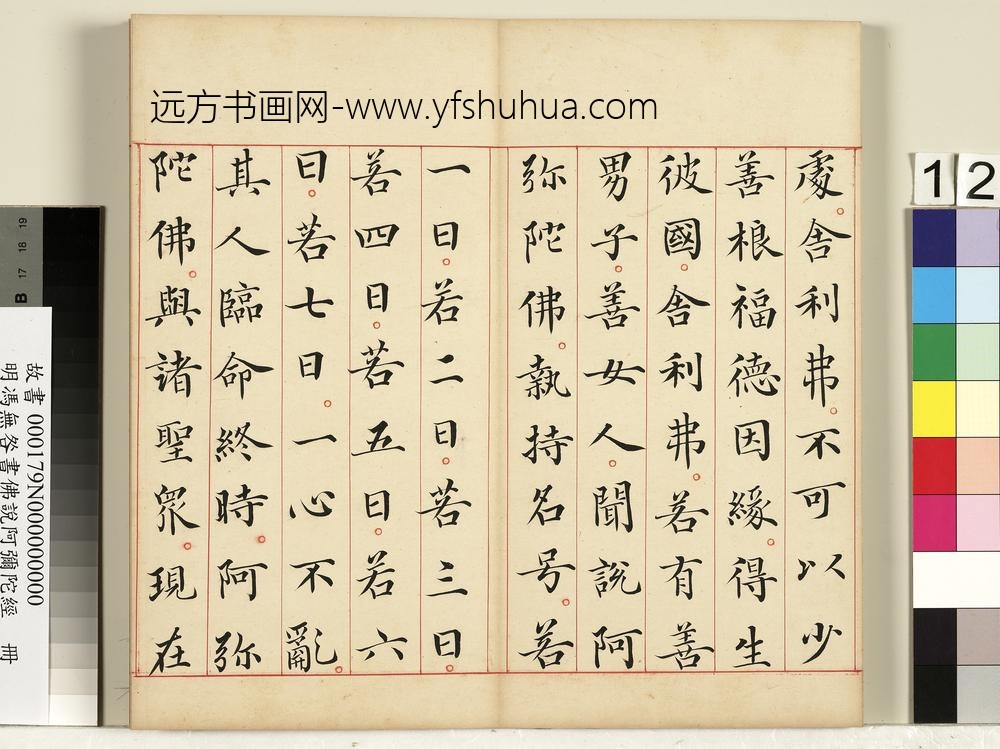 远方书画网-www.yfshuhua.com
處舍利弗不可以少
善根福德因緣得生
彼國舍利弗若有善
男子善女人聞說阿
弥陀佛執持名号若
一日若二日若三日
若四日若五日若六
日若七日一心不亂
其人臨命終時阿弥
陀佛與諸聖眾現在
12
19
18
17
B
故書 000179N000000000
明馮無咎書佛說阿彌陀經 冊